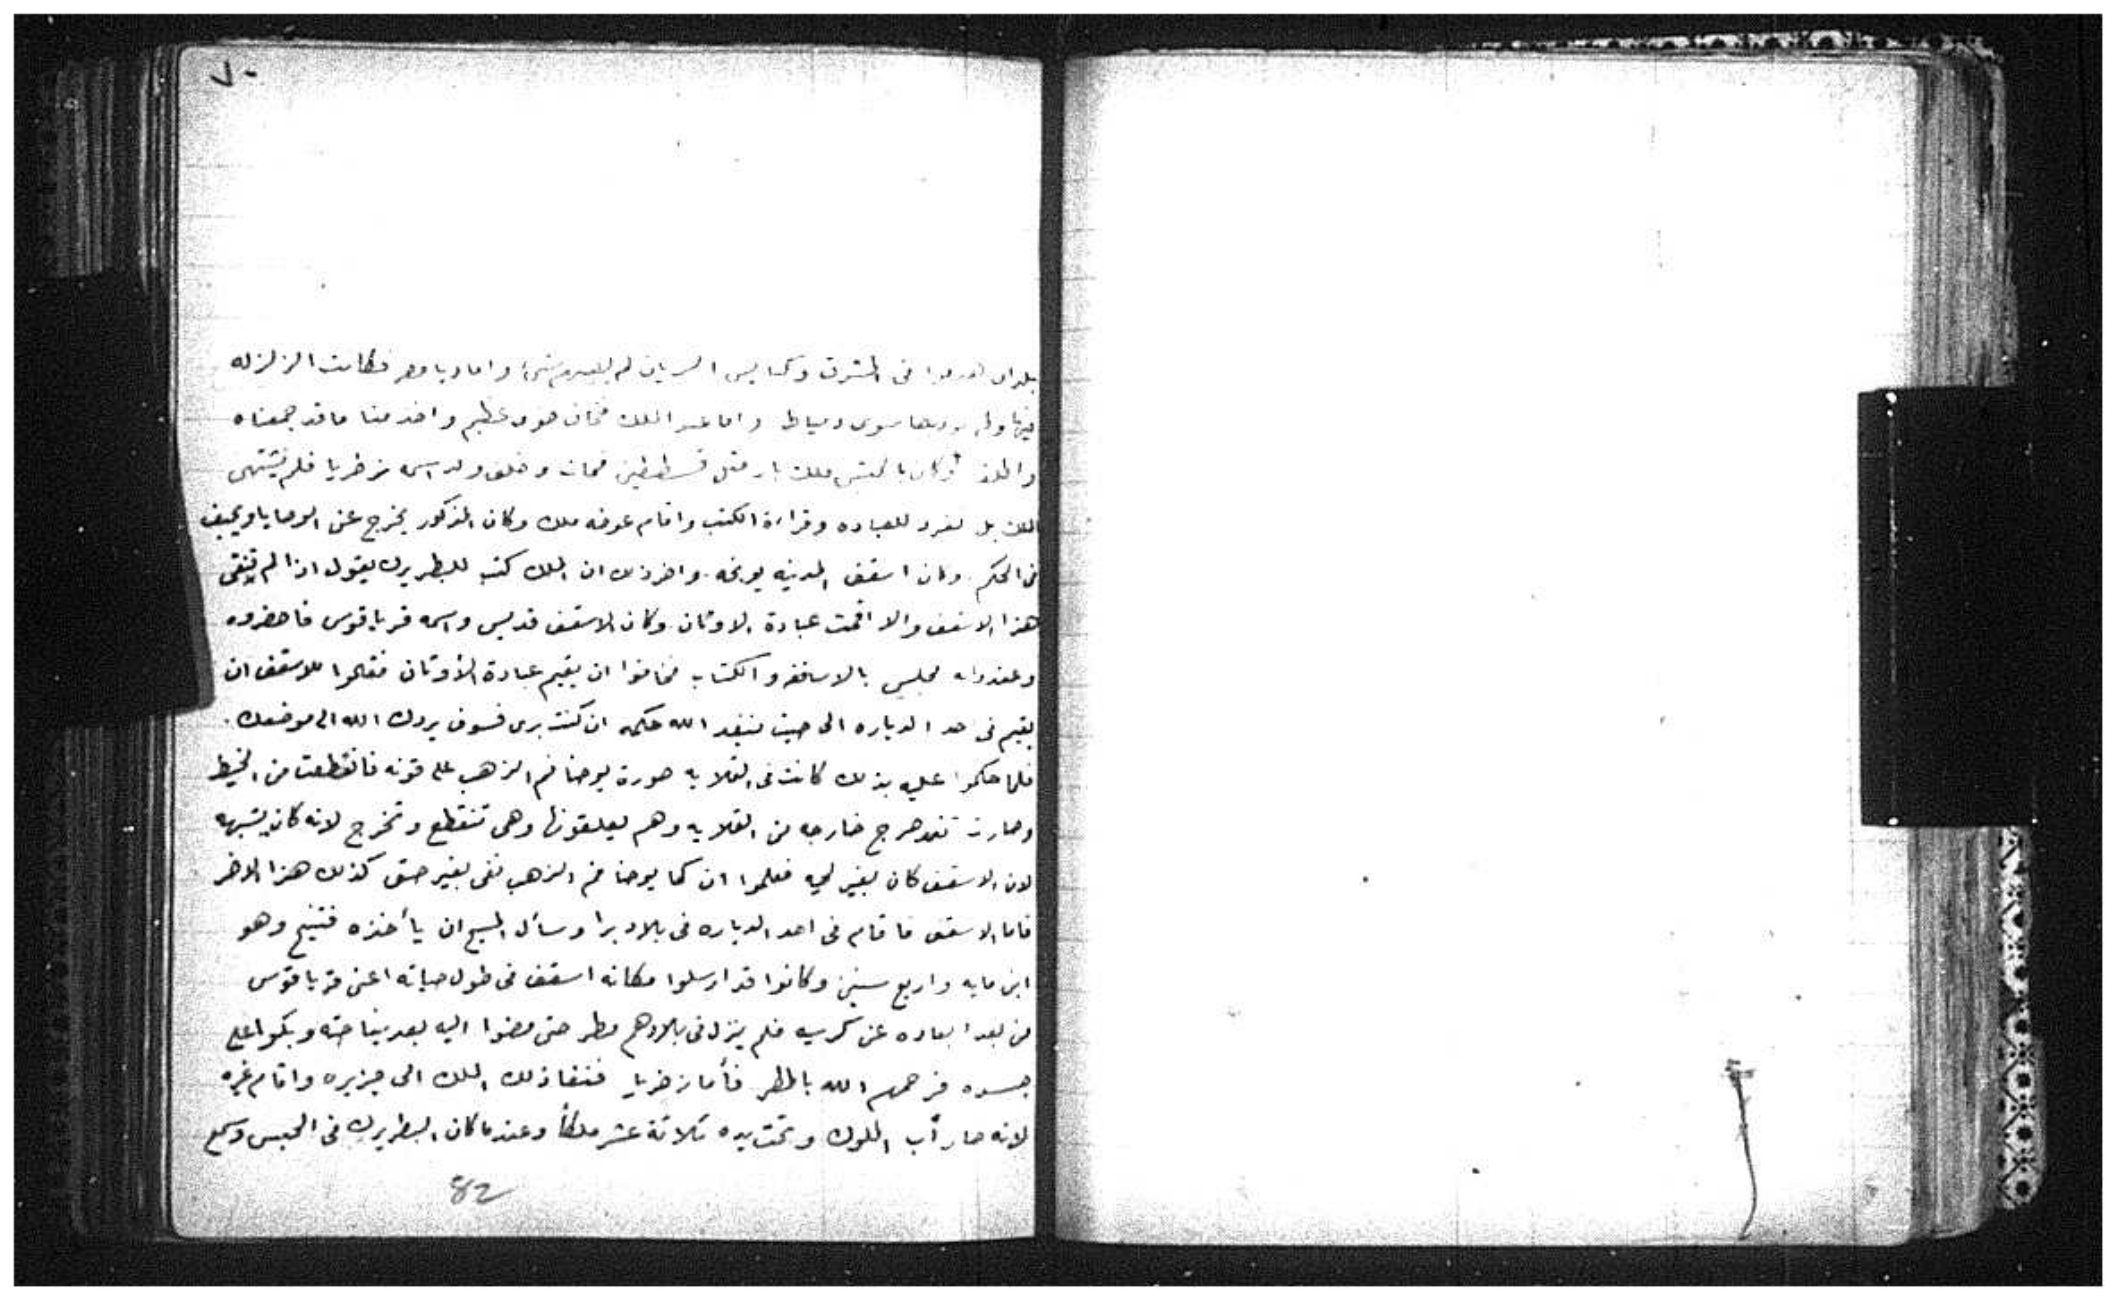 ٧٠
بلدان في المشرق وكنايس السريان لم يعدم شئ واما ديار مصر فكانت الزلزله
فيها ولم سوى دمياط واما عبد الملك فكان حزن عظيم واخذ منا ما قد جمعناه
وكان ملك بار مثل قسطنطين فمات وخلف ولد اسمه زخريا فلم يشتهى
الملك بل تفرد للعباده وقراءة الكتب واقام عوضه ملك وكان المذكور يخرج عن الوصايا ويحيف
فى الحكم وكان اسقف المدينه يوبخه. واخر ذلك ان الملك كتب للبطريرك يقول اذا لم تنفى
هذا الاسقف والا اقمت عبادة الاوثان وكان الاسقف قديس واسمه قرياقوس فاحضروه
وعقدوا له مجلس بالاساقفه والكتاب فخافوا ان يقيم عبادة الأوثان فقالوا للاسقف ان
يقيم فى احد الدياره الى حيث ينفد الله حكمه ان كنت برى فسوف يردك الله الى موضعك.
فلما حكموا عليه بذلك كانت فى القلايه صورة يوحنا فم الذهب على قونه فانقطعت من الخيط
وصارت تتدحرج خارجه من القلايه وهم يعلقونها وهى تنقطع وتخرج لانه كان يشبهه
لان الاسقف كان بغير لحيه فعلموا ان كما يوحنا فم الذهب نفى بغير حق كذلك هذا الاخر
فاما الاسقف فاقام فى احد الدياره فى بلاد برا وسأل المسيح ان يأخذه فتنيح وهو
ابن مايه واربع سنين وكانوا قد ارسلوا مكانه اسقف فى طول حياته اعنى قرياقوس
من بعد ابعاده عن كرسيه فلم ينزل فى بلادهم مطر حتى مضوا اليه بعد نياحته وبكوا على
جسده فرحمهم الله بالمطر فأما زخريا فنفا ذلك الملك الى جزيره واقام غيره
لانه صار أب الملوك وتحت يده ثلاثة عشر ملكاً وعندما كان البطريرك فى الحبس وسمع
82